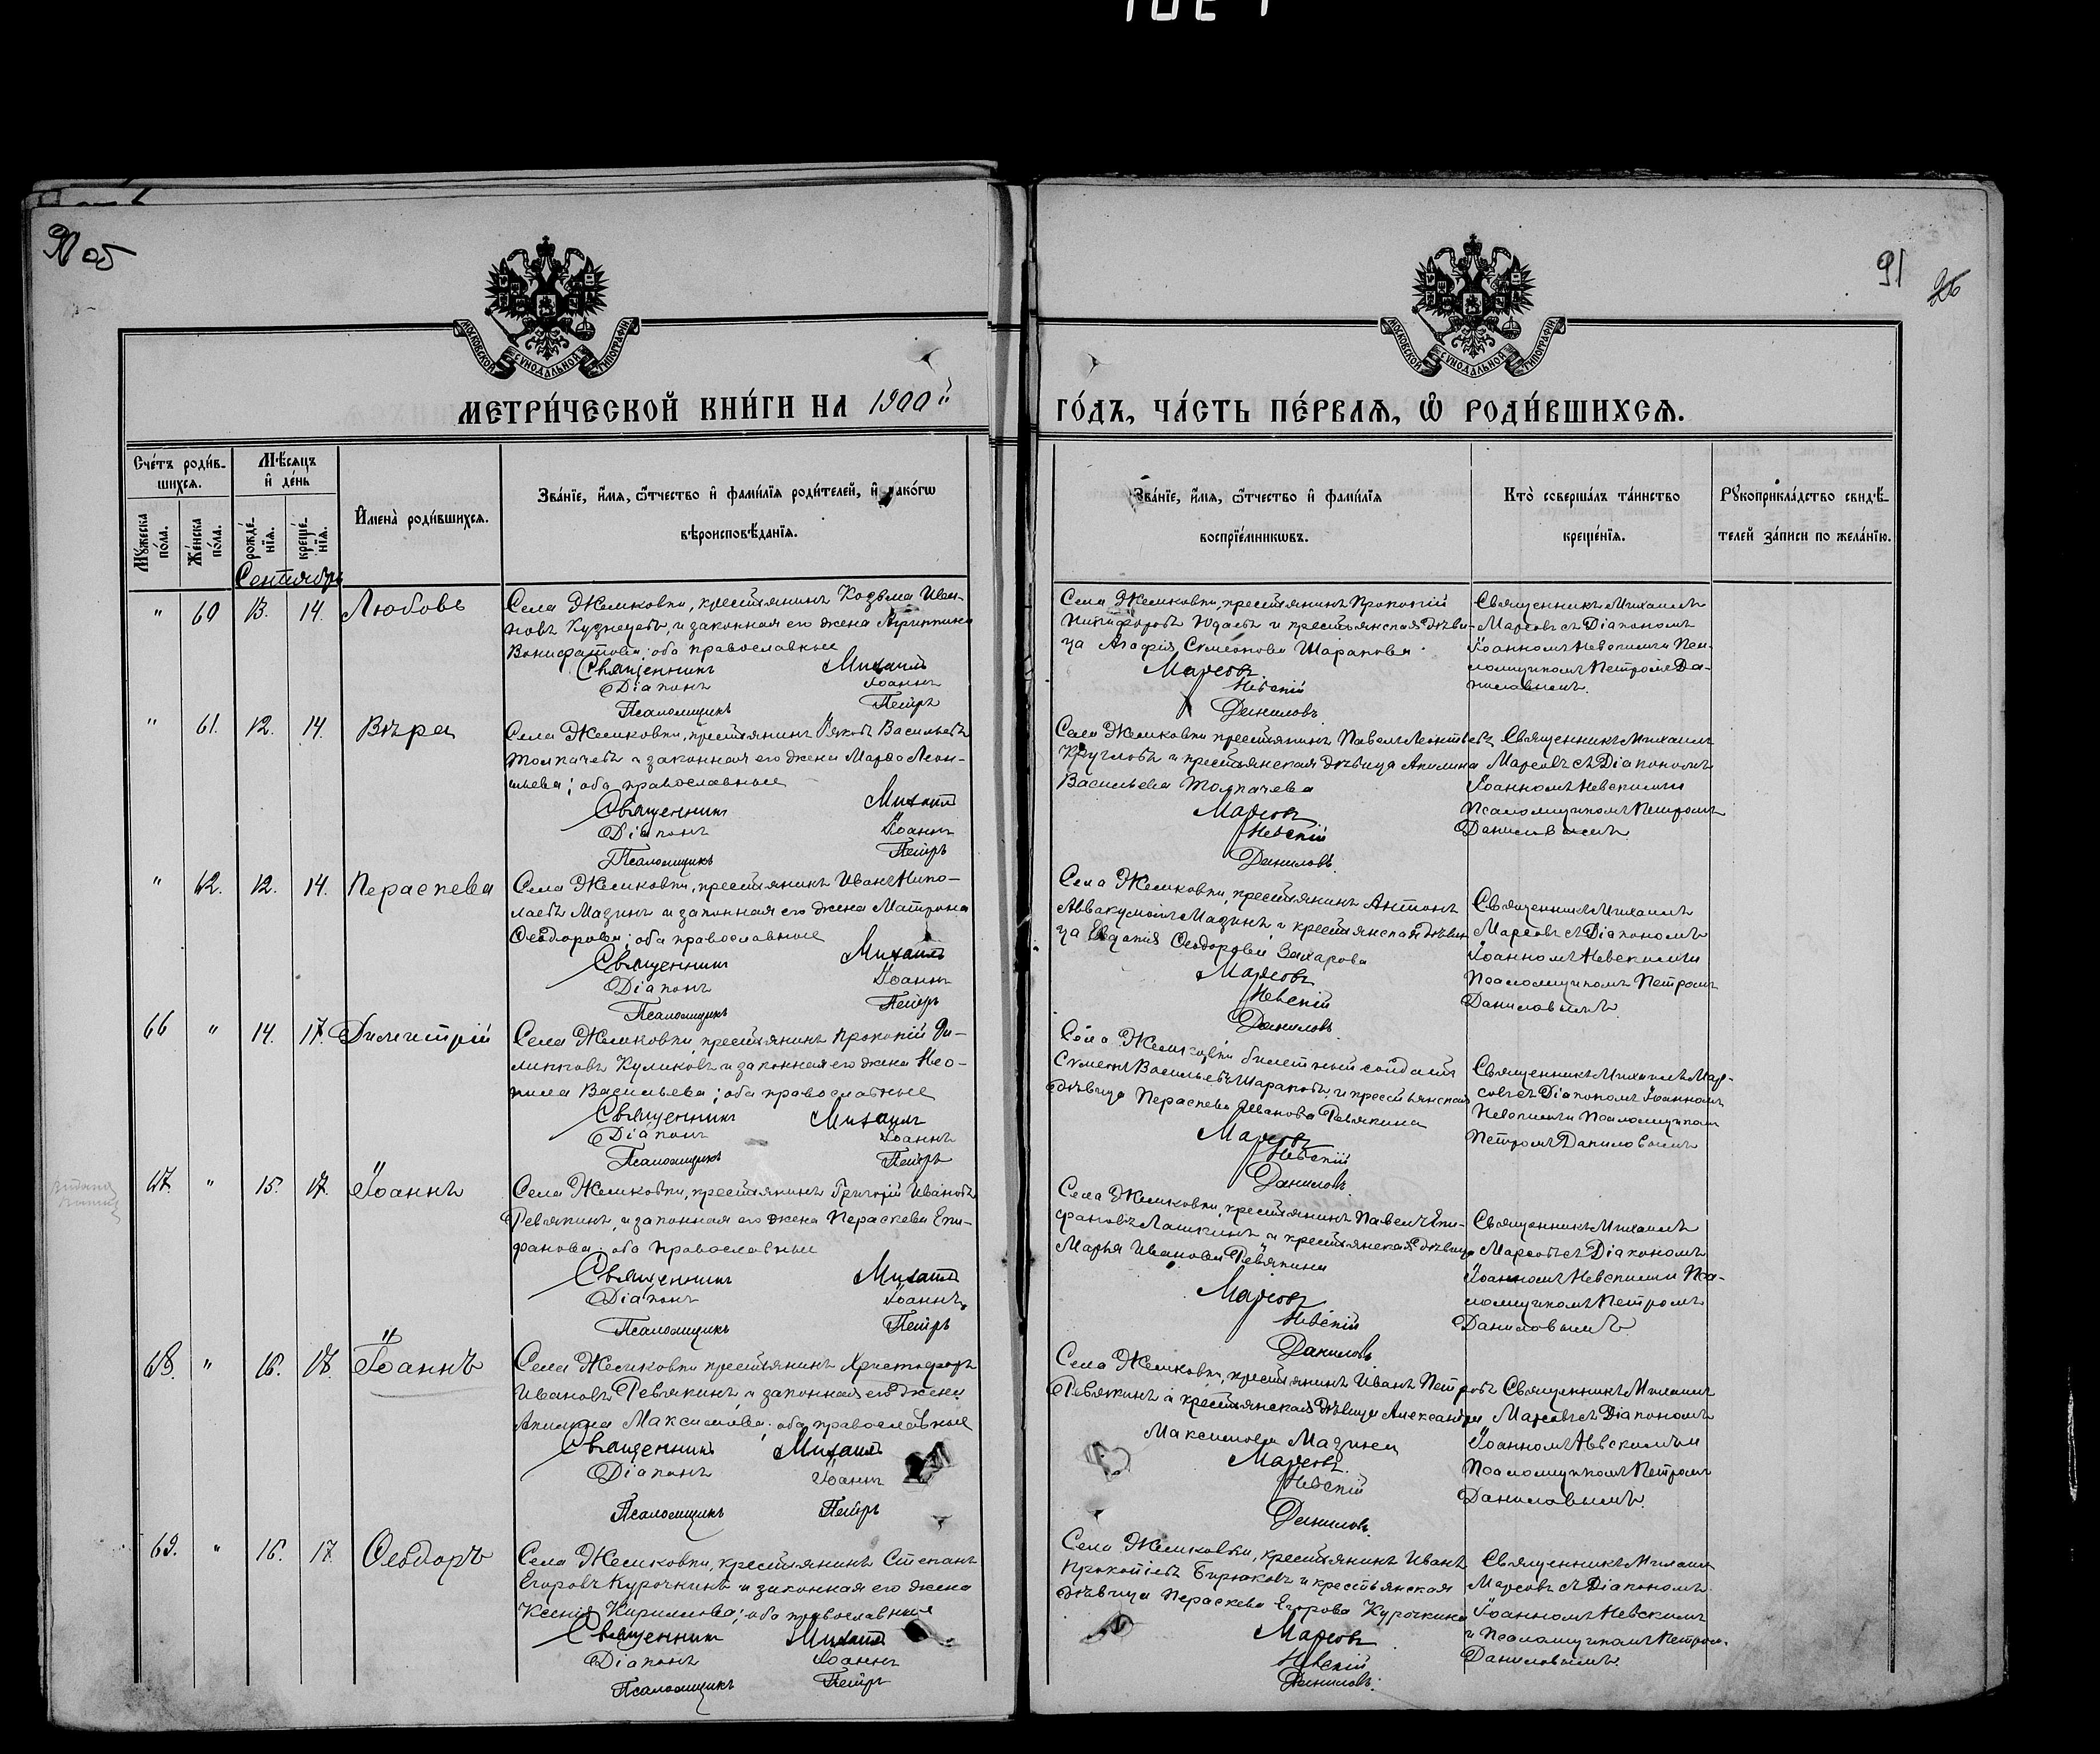 90 об
91
26
МОСКОВСКОЙ СѴНОДАЛЬНОЙ ТИПОГРАФІИ.
МОСКОВСКОЙ СѴНОДАЛЬНОЙ ТИПОГРАФІИ.
МЕТРИ́ЧЕСКОЙ КНИ́ГИ НА 1900й ГО́ДЪ, ЧА́СТЬ ПЕ́РВАѦ, Ѽ РОДИ́ВШИХСѦ.
Сче́тъ роди́в-
шихсѧ.
Мѣ́сѧцъ
и҆ де́нь
Мꙋ́жеска по́ла.
Же́нска по́ла.
рожде́-
нїѧ.
креще́-
нїѧ.
И҆мена̀ роди́вшихсѧ.
Зва́нїе, и҆́мѧ, ѻ҆́тчество и҆ фами́лїѧ роди́телей, и҆ како́гѡ
вѣроисповѣ́данїѧ.
Зва́нїе, и҆́мѧ, ѻ҆́тчество и҆ фами́лїѧ
воспрїе́мникѡвъ.
Кто̀ соверша́лъ та́инство
креще́нїѧ.
Рꙋкоприкла́дство свидѣ́-
телей за́писи по жела́нїю.
Сентябрь
" 60 13. 14. Любовь
Села Жемковки, крестьянинъ Козьма Ива-
новъ Кузнецовъ, и законная его жена Агриппина
Вонифатова; оба православные
Священникъ Михаилъ
Діаконъ Іоаннъ
Псаломщикъ Петръ
Села Жемковки, крестьянинъ Прокопій
Никифоровъ Юдаевъ и крестьянская дѣви-
ца Агафія Симеонова Шарапова.
Марсовъ
Невскій
Даниловъ
Священникъ Михаилъ
Марсовъ съ Діакономъ
Іоанномъ Невскимъ и Пса-
ломщикомъ Петромъ Да-
ниловымъ.
" 61. 12. 14. Вѣра
Села Жемковки, крестьянинъ Іяковъ Васильевъ
Толкачевъ и законная его жена Марѳа Леон-
тьева; оба православные
Священникъ Михаилъ
Діаконъ Іоаннъ
Псаломщикъ Петръ
Села Жемковки крестьянинъ Павелъ Леонтьевъ
Кругловъ и крестьянская дѣвица Акилина
Васильева Толкачева
Марсовъ
Невскій
Даниловъ.
Священникъ Михаилъ
Марсовъ съ Діакономъ
Іоанномъ Невскимъ и
Псаломщикомъ Петромъ
Даниловымъ
" 62. 12. 14. Параскева
Села Жемковки, крестьянинъ Иванъ Нико-
лаевъ Мазинъ и законная его жена Матрона
Ѳеодорова; оба православные
Священникъ Михаилъ
Діаконъ Іоаннъ
Псаломщикъ Петръ
Села Жемковки, крестьянинъ Антонъ
Аввакумовъ Мазинъ и крестьянская дѣви-
ца Евдокія Ѳеодорова Захарова
Марсовъ
Невскій
Даниловъ
Священникъ Михаилъ
Марсовъ съ Діакономъ
Іоанномъ Невскимъ и
Псаломщикомъ Петромъ
Даниловымъ.
66 " 14. 17. Димитрій
Села Жемковки крестьянинъ Прокопій Фи-
липповъ Куликовъ и законная его жена Нео-
нила Васильева; оба православные
Священникъ Михаилъ
Діаконъ Іоаннъ
Псаломщикъ Петръ
Села Жемковки билетный солдатъ
Симеонъ Васильевъ Шараповъ и крестьянская
дѣвица Параскева Иванова Ревякина
Марсовъ
Невскій
Даниловъ
Священникъ Михаилъ Мар-
совъ съ Діакономъ Іоанномъ
Невскимъ и Псаломщикомъ
Петромъ Даниловымъ
67. " 15. 17. Іоаннъ
Села Жемковки, крестьянинъ Григорій Ивановъ
Ревякинъ, и законная его жена Параскева Епи-
фанова; оба православные
Священникъ Михаилъ
Діаконъ Іоаннъ
Псаломщикъ Петръ
Села Жемковки, крестьянинъ Павелъ Епи-
фановъ Лашкинъ и крестьянская дѣвица
Марья Иванова Ревякина
Марсовъ
Невскій
Даниловъ
Священникъ Михаилъ
Марсовъ съ Діакономъ
Іоанномъ Невскимъ и Пса-
ломщикомъ Петромъ
Даниловымъ
68. " 16. 17. Іоаннъ
Села Жемковки крестьянинъ Христофоръ
Ивановъ Ревякинъ, и законная его жена
Акилина Максимова; оба православные
Священникъ Михаилъ
Діаконъ Іоаннъ
Псаломщикъ Петръ
Села Жемковки, крестьянинъ Иванъ Петровъ
Ревякинъ и крестьянская дѣвица Александра
Максимова Мазина
Марсовъ
Невскій
Даниловъ.
Священникъ Михаилъ
Марсовъ съ Діакономъ
Іоанномъ Невскимъ и
Псаломщикомъ Петромъ
Даниловымъ.
69. " 16. 17. Ѳеодоръ
Села Жемковки, крестьянинъ Степанъ
Егоровъ Курочкинъ и законная его жена
Ксенія Кириллова; оба православные
Священникъ Михаилъ
Діаконъ Іоаннъ
Псаломщикъ Петръ
Села Жемковки, крестьянинъ Иванъ
Прокопіевъ Бирюковъ и крестьянская
дѣвица Параскева Егорова Курочкина
Марсовъ
Невскій
Даниловъ.
Священникъ Михаилъ
Марсовъ съ Діакономъ
Іоанномъ Невскимъ
и Псаломщикомъ Петром.
Даниловымъ.